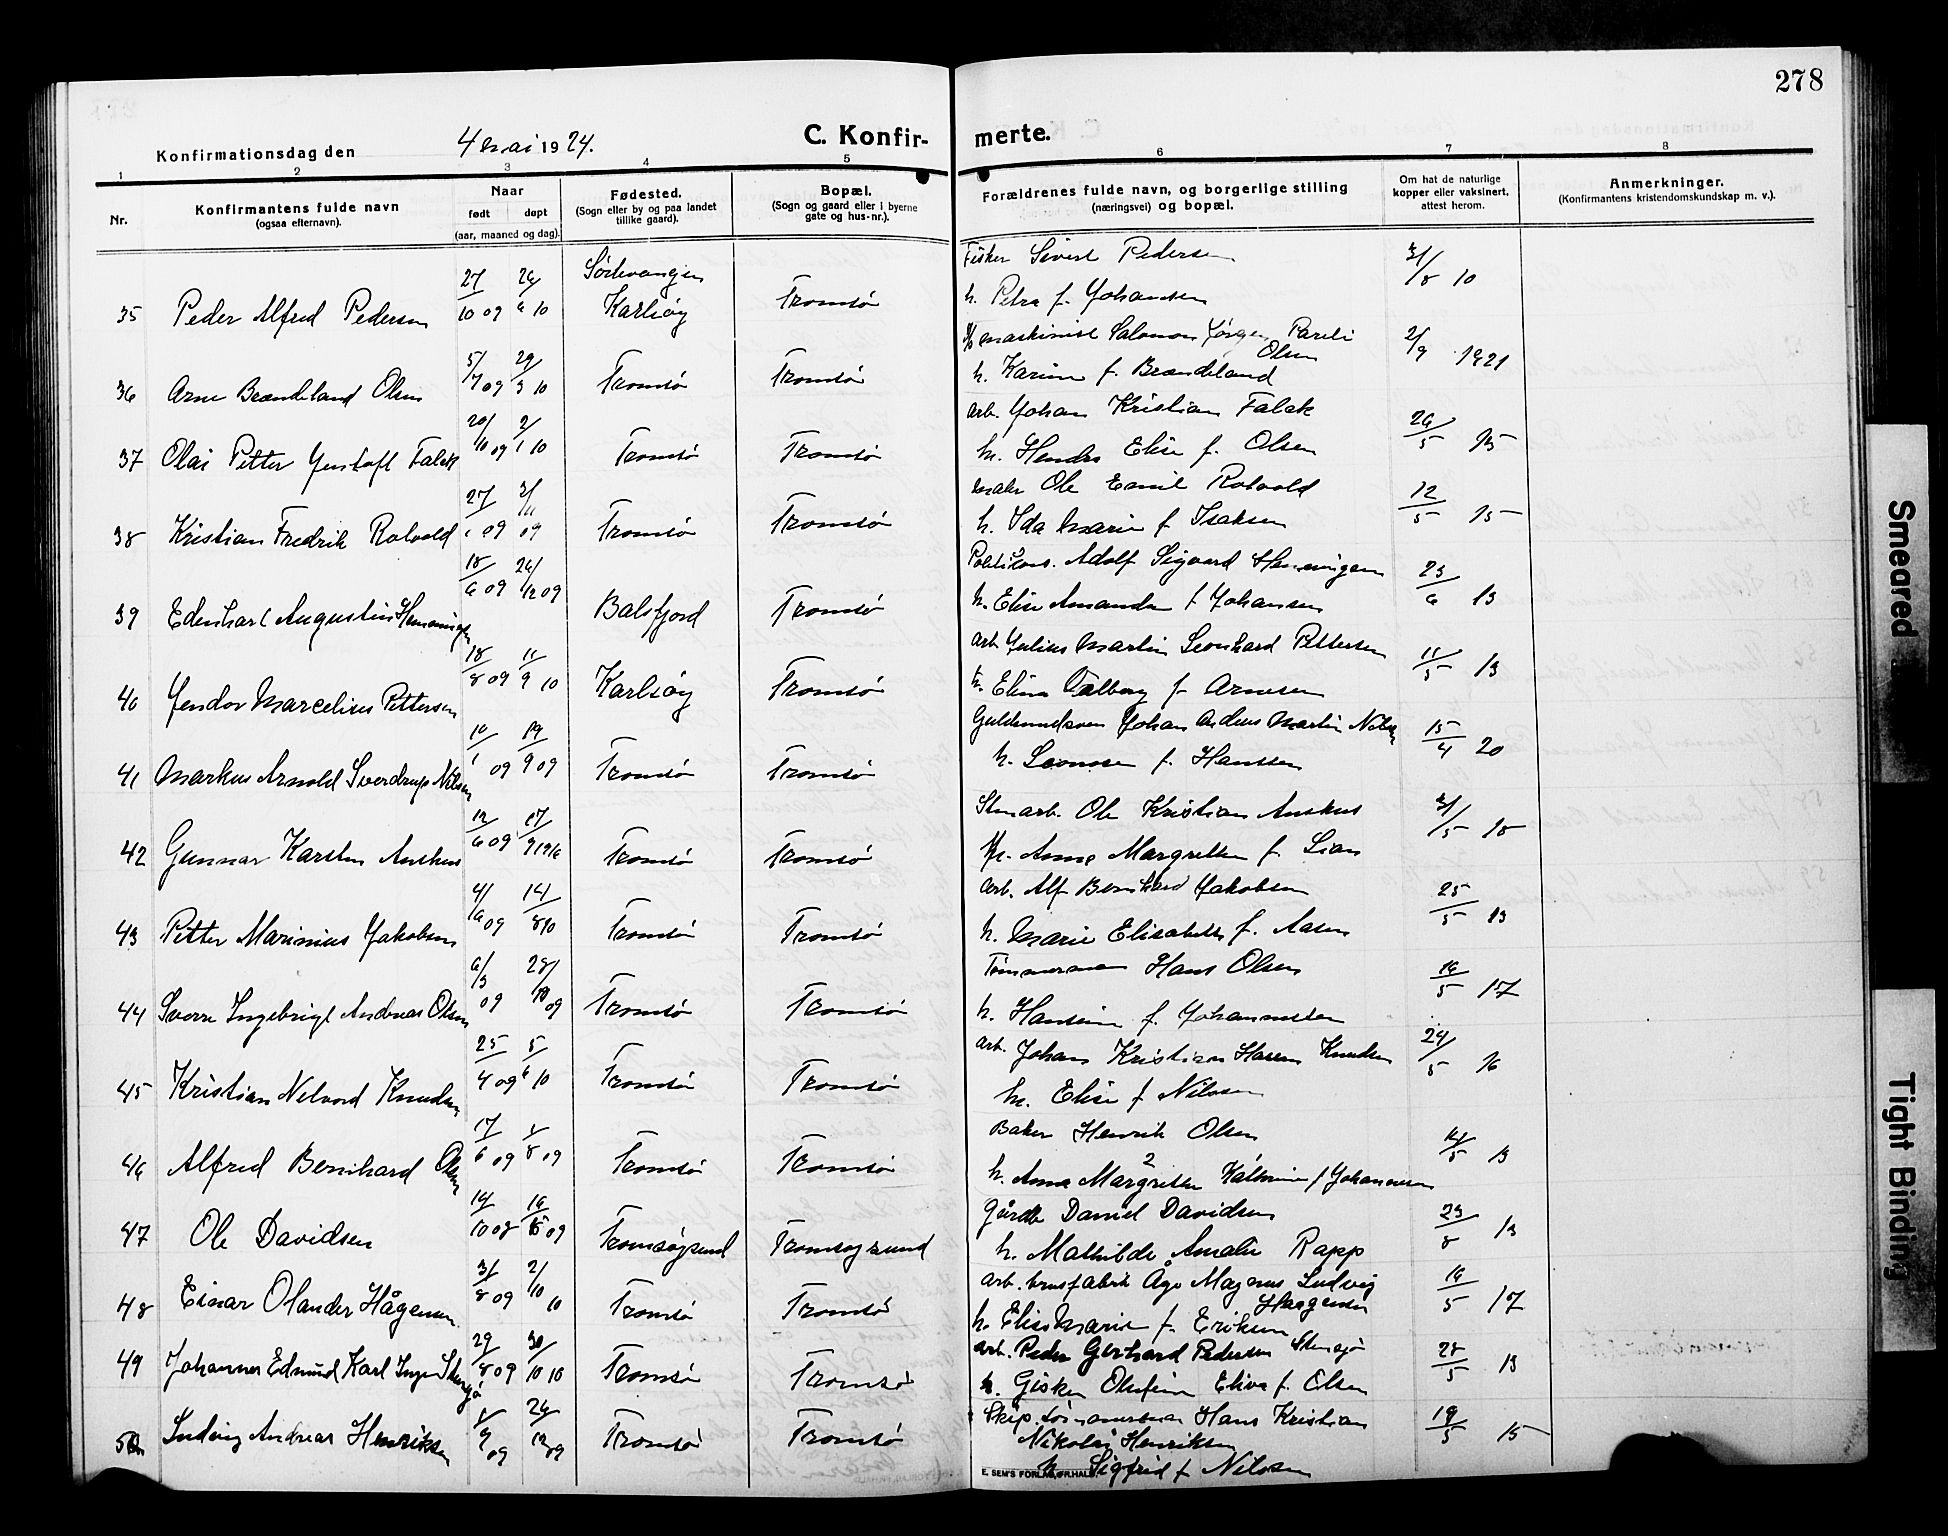 278
Konfirmationsdag den 4 mai 1924.
C. Konfir-
merte.
1 2 3 4 5 6 7 8
Nr.
Konfirmantens fulde navn
(ogsaa efternavn).
Naar
født døpt
(aar, maaned og dag).
Fødested.
(Sogn eller by og paa landet
tillike gaard).
Bopæl.
(Sogn og gaard eller i byerne
gate og hus-nr.).
Forældrenes fulde navn, og borgerlige stilling
(næringsvei) og bopæl.
Om hat de naturlige
kopper eller vaksinert,
attest herom.
Anmerkninger.
(Konfirmantens kristendomskundskap m. v.).
Fisker Sivert Pedersen
35 Peder Alfred Pedersen 27/10 09 Karlsøy Tromsø
h. Petra f. Johansen
maskinist Salomon Jørgen Pareli
Olsen
36 Arne Brændeland Olsen 5/7 09 29/3 10 Tromsø Tromsø 2/9 1921
h. Karine f. Brændeland
arb. Johan Kristian Falck
37 Olai Petter Gustaft Falck 20/10 09 2/1 10 Tromsø Tromsø 26/5 15
h. Elise f. Olsen
maler Ole Emil Rotvold
38 Kristian Fredrik Rotvold 27/1 09 Tromsø Tromsø 12/5 15
h. Ida Marie f. Isaksen
Adolf Sigvard Henningsen
39 Edenhart Augustin Henningsen 18/6 09 26/12 09 Balsfjord Tromsø 23/6 13
h. Elise Amanda f Johansen
arb. Julius Martin Leonhard Pettersen
40 Marcelius Pettersen 18/8 09 11/9 10 Karlsøy Tromsø 11/5 13
h. Elina Valborg f. Arnesen
Johan Andreas Martin Nilsen
41 Markus Arnold Sverdrup Nilsen 10/1 09 19/9 09 Tromsø Tromsø 15/4 20
h. f. Hanssen
Stuarb. Ole Kristian Auskus
42 Gunnar Karsten Auskus 12/6 09 17/9 1916 Tromsø Tromsø
h. Anna Margrethe f. Lian
arb. Alf Bernhard Jakobsen
43 Petter Marinius Jakobsen 4/6 09 14/8 10 Tromsø Tromsø 25/5 13
h. Marie Elisabeth f. Aasen
Tømmermann Hans Olsen
44 Sverre Ingebrigt Andreas Olsen 6/3 09 28/10 09 Tromsø Tromsø 16/5 17
h. Hansine f. Johannessen
arb. Johan Kristian Hansen Knudsen
45 Kristian Nelvord Knudsen 25/4 09 5/6 10 Tromsø Tromsø 29/5 16
h. Elise f Nilsen
Baker Henrik Olsen
46 Alfred Bernhard Olsen 17/6 09 1/8 09 Tromsø Tromsø 13
h. Anna Margrethe Katrine f Johannesen
Gårdb. Daniel Davidsen
47 Ole Davidsen 14/10 08 09 Tromsøysund Tromsøysund 23/8 13
h. Mathilde Amalie Rapp
arb. brusfabrik Åge Magnus Ludvig
Haagensen
48 Einar Olander Hågensen 31/8 09 2/10 10 Tromsø Tromsø 16/5 17
h. Elise Marie f. Eriksen
arb. Peder Gerhard Pedersen Stensjø
49 Johannes Edmund Karl Inge Stensjø 29/8 09 30/10 10 Tromsø Tromsø 28/5 13
h. Gisken Olufine Elise f. Olsen
Skip. tømmermann Hans Kristian
50 Ludvig Andreas Henriksen 1/9 09 26/12 09 Tromsø Tromsø 19/5 15
Nikolai Henriksen
h. Sigfrid f Nilssen
E. SEM'S FORLAG, FR.HALD.
Smeared
Tight Binding